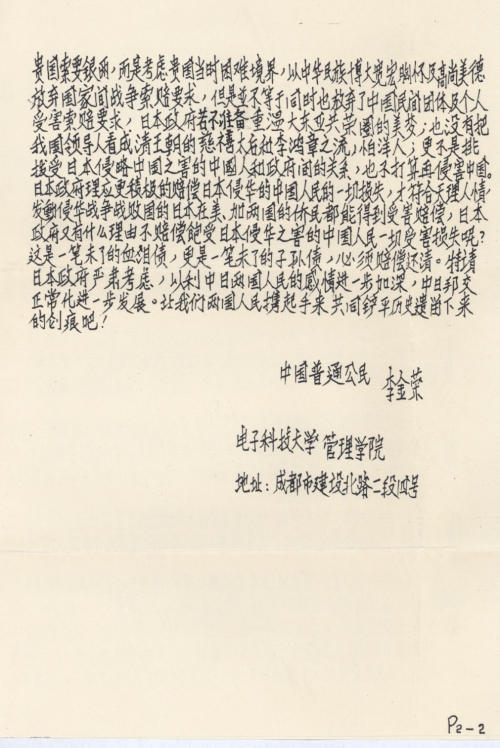 贵国索要银两，而是考虑贵国当时困难境界，以中华民族博大宽宏胸怀及高尚美德
放弃国家间战争索赔要求，但是并不等于同时也放弃了中国民间团体及个人
受害索赔要求，日本政府若不准备重温大东亚共荣圈的美梦；也没有把
我国领导人看成清王朝的慈禧太后和李鸿章之流，怕洋人；更不是挑
拨受日本侵略中国之害的中国人和政府间的关系，也不打算再侵害中国。
日本政府理应更积极的赔偿日本侵华的中国人民的一切损失，才符合天理人情。
发动侵华战争战败国的日本在美、加两国的侨民都能得到受害赔偿，日本
政府又有什么理由不赔偿能受日本侵华之害的中国人民一切受害损失呢？
这是一笔未了的血泪债，更是一笔未了的子孙债，必须赔偿还清。特请
日本政府严肃考虑，以利中日两国人民的感情进一步加深，中日邦交
正常化进一步发展。让我们两国人民携起手来共同铲平历史遗留下来
的创痕吧！
中国普通公民 李金荣
电子科技大学管理学院
地址：成都市建设北路二段四号
P2-2